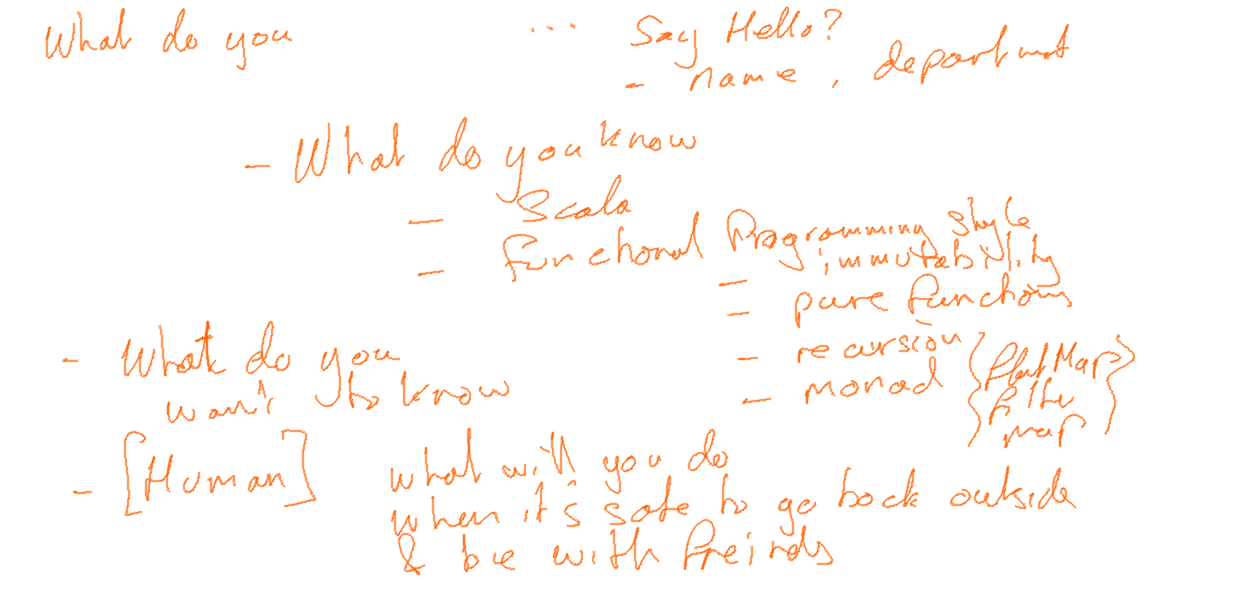 What do you ... Say Hello?
- name, department
- What do you know
- Scala
- Functional Programming Style
- immutability
- pure functions
- What do you
want to know
- recursion
- monad { flatMap }
filter
map
- [Human] what will you do
when it's safe to go back outside
& be with freinds